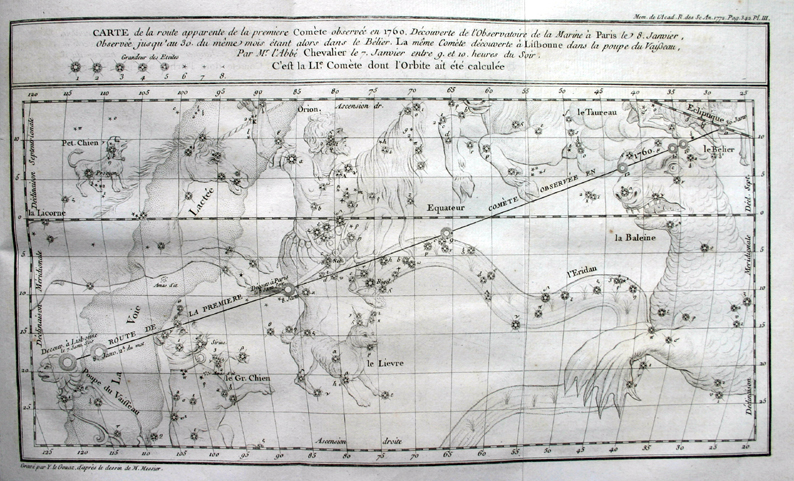 Mem. de l'Acad. R. des Sc. An. 1772. Pag. 342. Pl. III.
CARTE de la route apparente de la premiere Comète observée en 1760. Découverte de l'Observatoire de la Marine à Paris le 8. Janvier,
Observée jusqu'au 30. du même mois étant alors dans le Bélier. La même Comète découverte à Lisbonne dans la poupe du Vaisseau,
Par Mr. l'Abbé Chevalier le 7. Janvier entre 9. et 10. heures du Soir.
Grandeur des Etoiles
C'est la LIe. Comète dont l'Orbite ait été calculée
1 2 3 4 5 6 7 8
120 115 110 105 100 95 90 85 80 75 70 65 60 55 50 45 40 35 30 25
Orion
Ascension dr.
le Taureau
Ecliptique
Pet. Chien
Procyon
1760.
le Bélier
Déclinaison Septentrionale
Décl. Sept.
Lactée
Equateur
COMETE OBSERVÉE EN
la Licorne
la Baleine
Déclinaison Méridionale
Méridionale
l'Eridan
Rigel
Voie
LA PREMIERE
ROUTE DE
Découv. à Lisbonne
le 7. Janv.
Sirius
la
Poupe du Vaisseau
le Gr. Chien
le Lievre
Déclinaison
Ascension droite
110 105 100 95 90 85 80 75 70 65 60 55 50 45 40 35 30
Gravé par Y. le Gouaz, d'après le dessin de M. Messier.